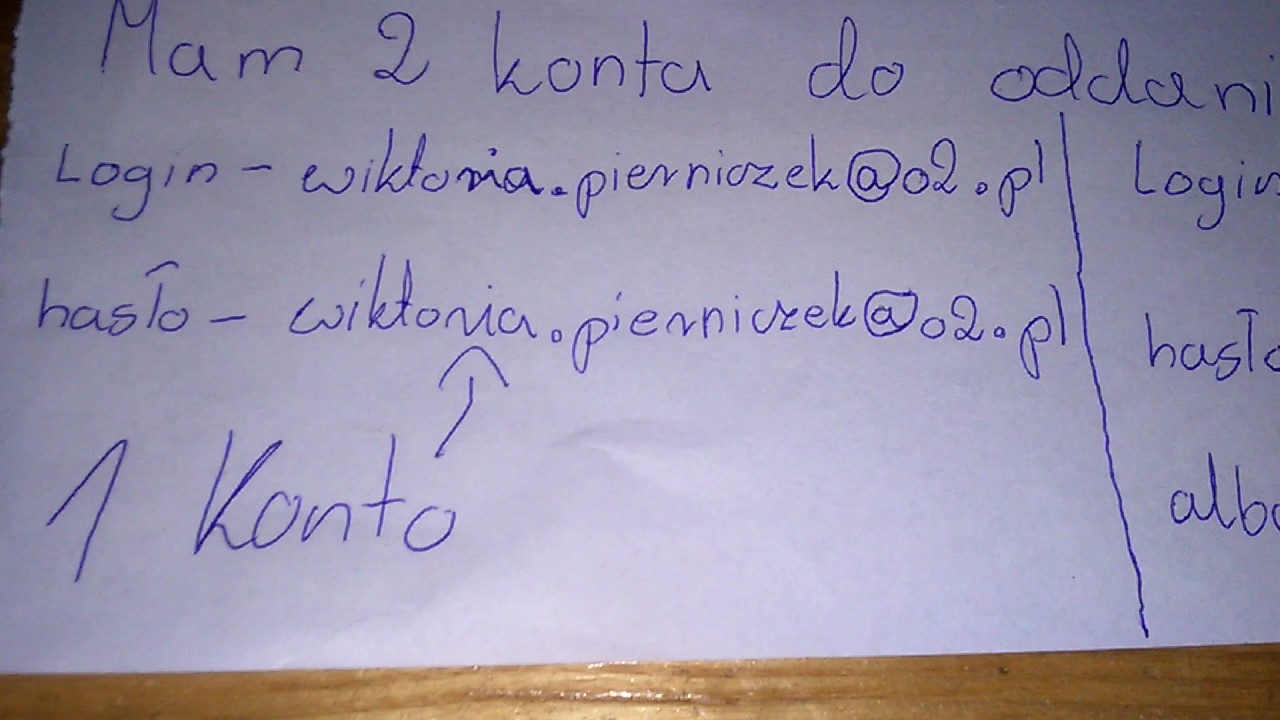 Mam 2 konta do oddani
Login - wiktoria.pierniczek@o2.pl
hasło - wiktoria.pierniczek@o2.pl
1 Konto
Login
hasło
albo